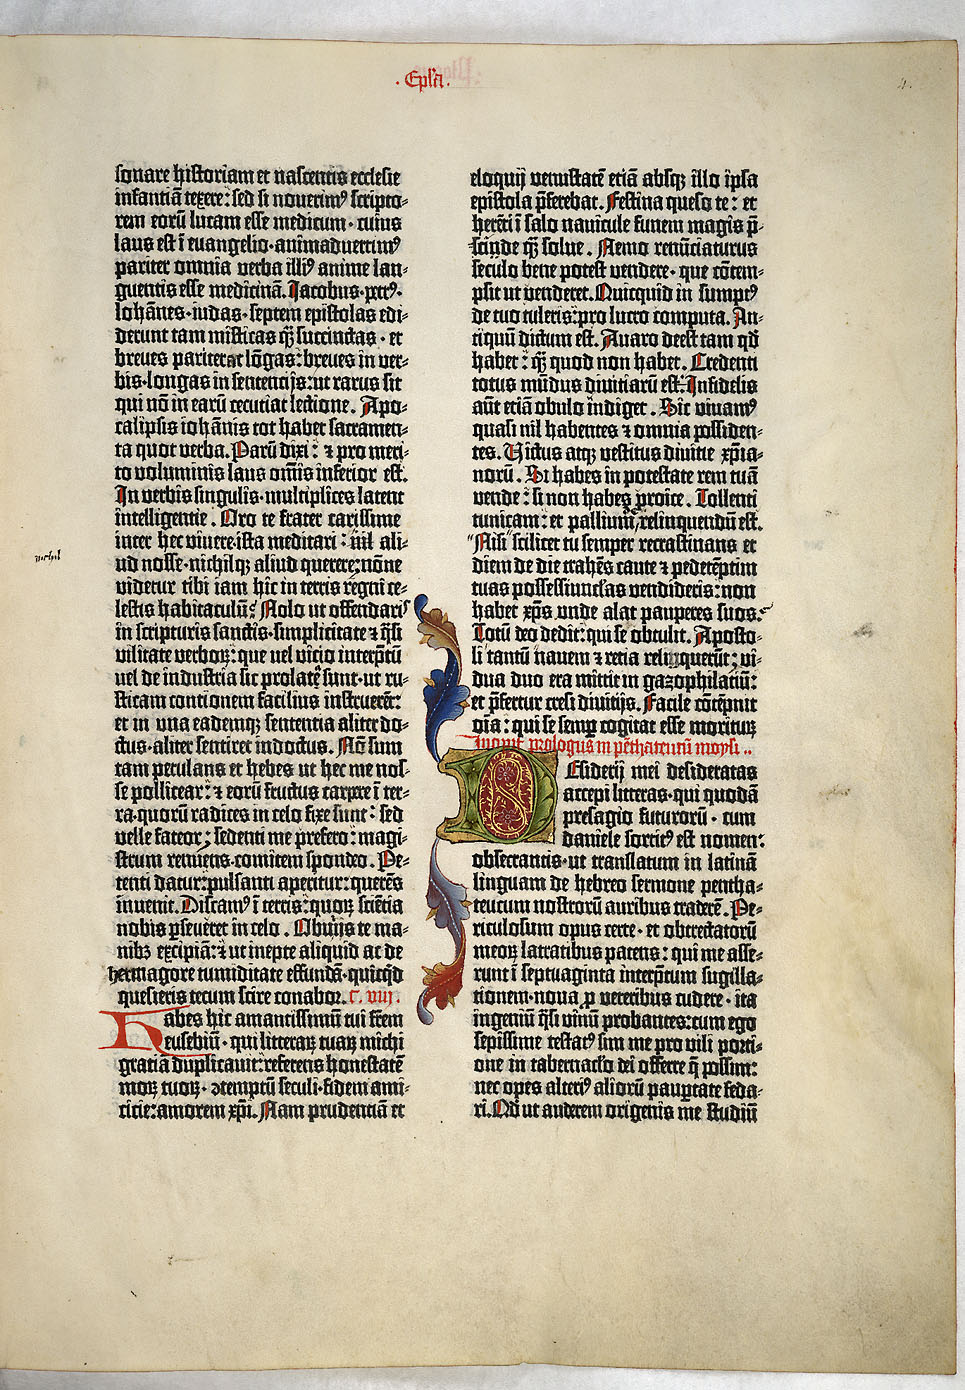 · Ep̄la ·
4.
sonare historiam et nascentis ecclesie
infantiā texere: sed si noverimꝰ scripto-
rem eorū lucam esse medicum · cuius
laus est ī euangelio · animaduertimꝰ
pariter omnia verba illiꝰ anime lan-
guentis esse medicinā. Iacobus · petrꝰ ·
Iohānes · iudas · septem epistolas edi-
derunt tam misticas q̄ȝ succinctas · et
breues pariter ac lōgas: breues in ver-
bis · longas in sentencijs: ut rarus sit
qui nō in earū cecutiat lectione. Apo-
calipsis iohānis tot habet sacramen-
ta quot verba. Parū dixi: ⁊ pro meri-
to voluminis laus om̄is inferior est.
In verbis singulis · multiplices latent
intelligentie. Oro te frater carissime
inter hec vivere · ista meditari: nil ali-
ud nosse · nichilqȝ aliud querere; nōne
nichil
videtur tibi iam hic in terris regni ce-
lestis habitaculū? Nolo ut offendaris
in scripturis sanctis · simplicitate ⁊ q̄si
vilitate verboꝝ: que uel vicio interp̄tū
uel de industria sic prolate sunt · ut ru-
sticam contionem facilius instruerēt:
et in una eademqȝ sententia aliter do-
ctus · aliter sentiret indoctus. Nō sum
tam petulans et hebes ut hec me nos-
se pollicear: ⁊ eorū fructus carpere ī ter-
ra · quorū radices in celo fixe sunt: sed
velle fateor; sedenti me prefero: magi-
strum renuens · comitem spondeo. Pe-
tenti datur: pulsanti aperitur: querēs
invenit. Discamꝰ ī terris: quoꝝ sciētia
nobis ꝑseveret in celo. Obuijs te ma-
nibȝ excipiā: ⁊ ut inepte aliquid ac de
hermagore tumiditate effundā · quicq̄d
quesieris tecum scire conabor. C. viij.
Habes hic amantissimū tui frēm
eusebiū · qui litteraꝝ tuaꝝ michi
gratiā duplicavit: referens honestatē
moꝝ tuoꝝ · ꝯtemptū seculi · fidem ami-
ticie: amorem xp̄i. Nam prudentiā et
eloquij venustatē etiā absqȝ illo ip̄sa
epistola p̄ferebat. Festina queso te: et
herēti ī salo navicule funem magis p̄-
scinde q̄ȝ solve. Nemo renūciaturus
seculo bene potest vendere · que cōtem-
psit ut venderet. Quicquid in sumptꝰ
de tuo tuleris: pro lucro computa. An-
tiquū dictum est. Avaro deest tam qd̄
habet: q̄ȝ quod non habet. Credenti
totus mūdus divitiarū est: Infidelis
aūt etiā obulo indiget. Sic vivamꝰ
quasi nil habentes ⁊ omnia possiden-
tes. Victus atqȝ vestitus divitie xp̄ia-
norū. Si habes in potestate rem tuā
vende: si non habes proice. Tollenti
tunicam: et pallium relinquendū est.
Nisi scilicet tu semper recrastinans et
diem de die trahēs caute ⁊ pedetēptim
tuas possessiunclas vendideris: non
habet xp̄s unde alat pauperes suos.
Totū deo dedit: qui se obtulit. Aposto-
li tantū navem ⁊ retia reliquerūt; vi-
dua duo era mittit in gazophilatiū:
et p̄fertur cresi divitijs. Facile cōtēpnit
oīa: qui se semꝑ cogitat esse morituꝝ
Incipit prologus in pētharentū moysi ..
Desiderij mei desideratas
accepi litteras · qui quodā
presagio futurorū · cum
daniele sortitꝰ est nomen:
obsecrantis · ut translatum in latinā
linguam de hebreo sermone pentha-
teucum nostrorū auribus traderē. Pe-
riculosum opus certe · et obtrectatorū
meoꝝ latratibus patens: qui me asse-
runt ī septuaginta interp̄tum sugilla-
tionem · nova ꝓ veteribus cudere · ita
ingeniū q̄si vinū probantes: cum ego
sepissime testatꝰ sim me pro vili porti-
one in tabernac̄lo dei offerre q̄ possim:
nec opes alteriꝰ aliorū pauꝑtate feda-
ri. Qd̄ ut auderem origenis me studiū